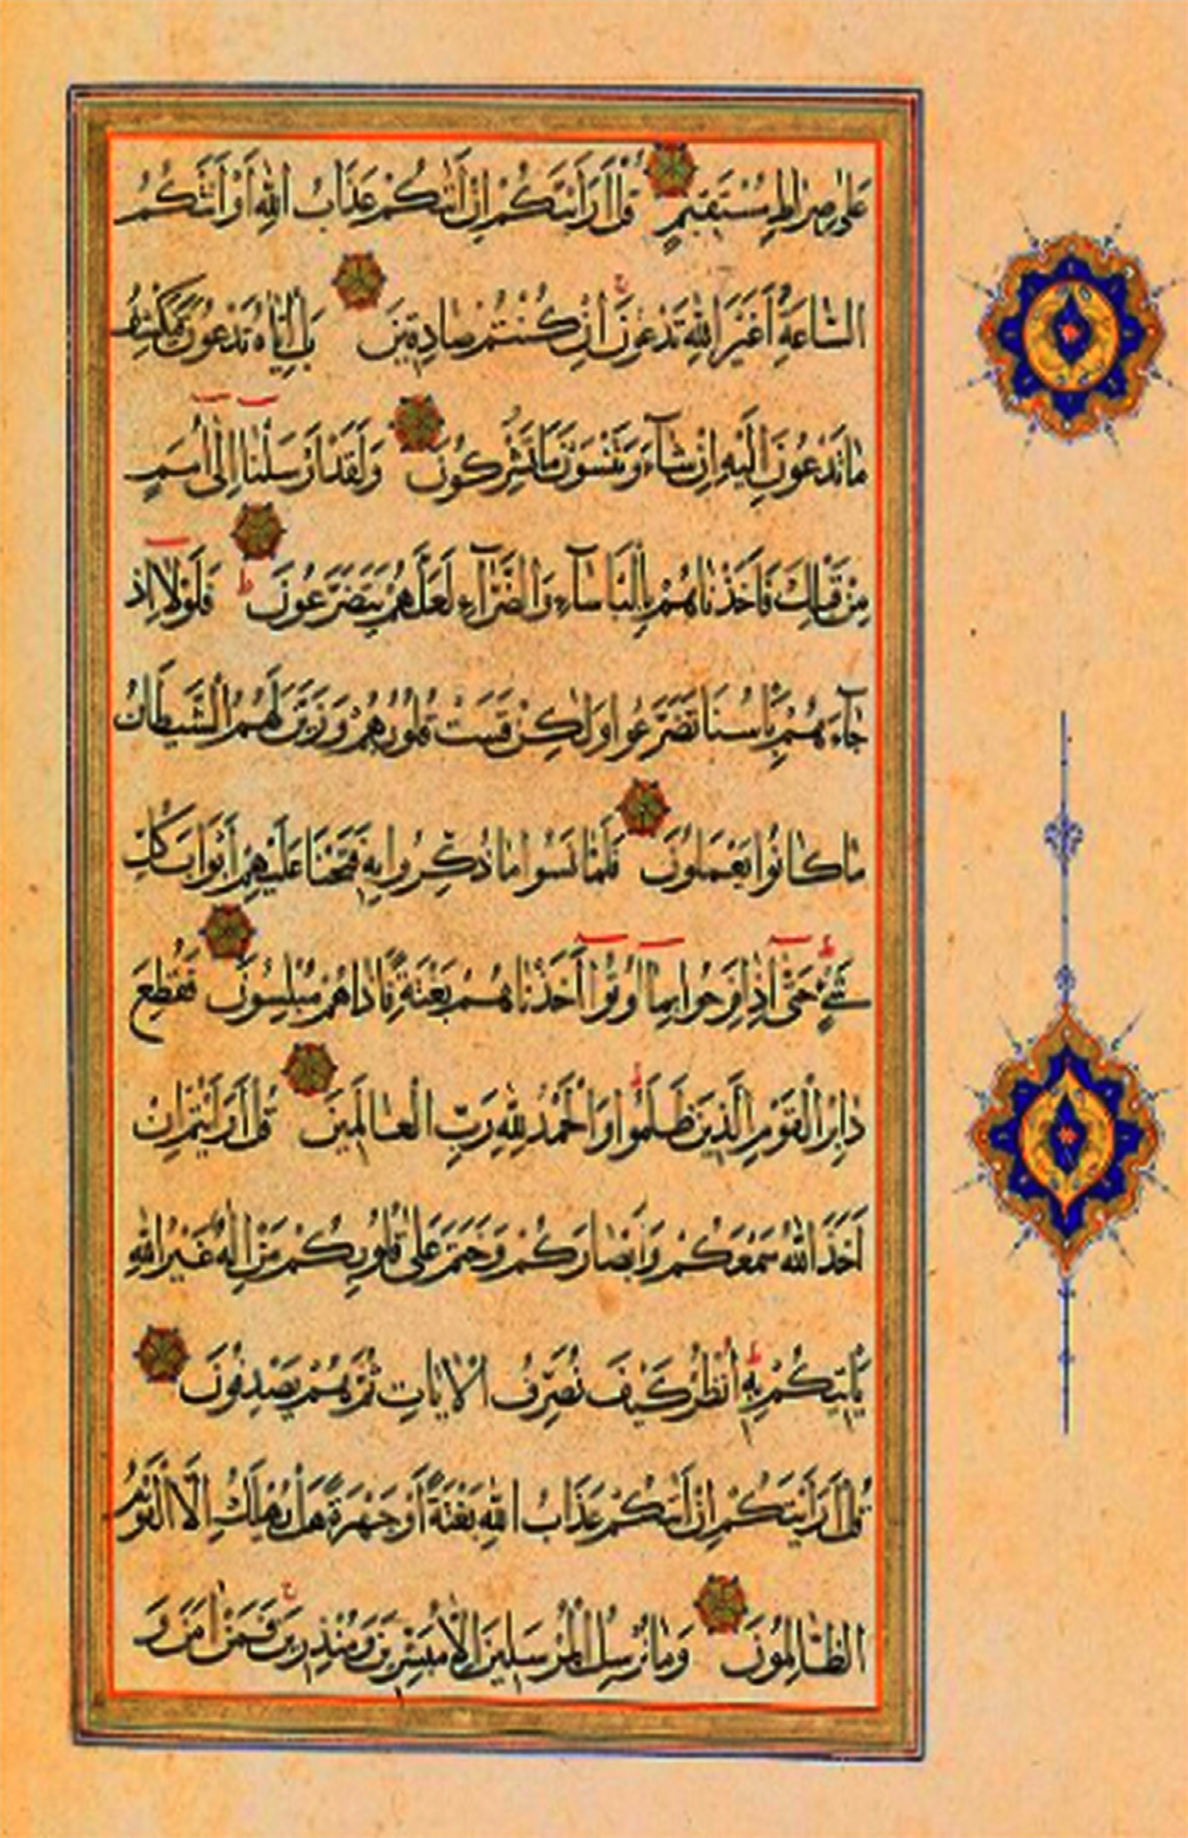 عَلٰى صِرَاطٍ مُسْتَقِيمٍ قُلْ اَرَاَيْتَكُمْ اِنْ اَتٰيكُمْ عَذَابُ اللّٰهِ اَوْ اَتَتْكُمُ
السَّاعَةُ اَغَيْرَ اللّٰهِ تَدْعُونَ اِنْ كُنْتُمْ صَادِقِينَ بَلْ اِيَّاهُ تَدْعُونَ فَيَكْشِفُ
مَا تَدْعُونَ اِلَيْهِ اِنْ شَآءَ وَتَنْسَوْنَ مَا تُشْرِكُونَ وَلَقَدْ اَرْسَلْنَا اِلٰى اُمَمٍ
مِنْ قَبْلِكَ فَاَخَذْنَاهُمْ بِالْبَاْسَآءِ وَالضَّرَّآءِ لَعَلَّهُمْ يَتَضَرَّعُونَ فَلَوْلَا اِذْ
جَآءَهُمْ بَاْسُنَا تَضَرَّعُوا وَلٰكِنْ قَسَتْ قُلُوبُهُمْ وَزَيَّنَ لَهُمُ الشَّيْطَانُ
مَا كَانُوا يَعْمَلُونَ فَلَمَّا نَسُوا مَا ذُكِّرُوا بِهٖ فَتَحْنَا عَلَيْهِمْ اَبْوَابَ كُلِّ
شَيْءٍ حَتّٰى اِذَا فَرِحُوا بِمَا اُوتُوا اَخَذْنَاهُمْ بَغْتَةً فَاِذَا هُمْ مُبْلِسُونَ فَقُطِعَ
دَابِرُ الْقَوْمِ الَّذِينَ ظَلَمُوا وَالْحَمْدُ لِلّٰهِ رَبِّ الْعَالَمِينَ قُلْ اَرَاَيْتُمْ اِنْ
اَخَذَ اللّٰهُ سَمْعَكُمْ وَاَبْصَارَكُمْ وَخَتَمَ عَلٰى قُلُوبِكُمْ مَنْ اِلٰهٌ غَيْرُ اللّٰهِ
يَاْتِيكُمْ بِهٖ اُنْظُرْ كَيْفَ نُصَرِّفُ الْاٰيَاتِ ثُمَّ هُمْ يَصْدِفُونَ
قُلْ اَرَاَيْتَكُمْ اِنْ اَتٰيكُمْ عَذَابُ اللّٰهِ بَغْتَةً اَوْ جَهْرَةً هَلْ يُهْلَكُ اِلَّا الْقَوْمُ
الظَّالِمُونَ وَمَا نُرْسِلُ الْمُرْسَلِينَ اِلَّا مُبَشِّرِينَ وَمُنْذِرِينَ فَمَنْ اٰمَنَ وَ